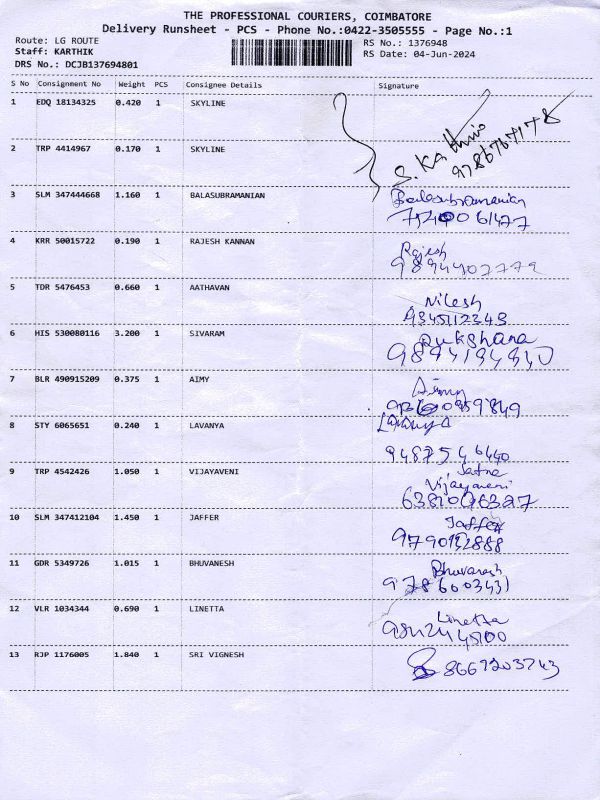 THE PROFESSIONAL COURIERS, COIMBATORE
Delivery Runsheet - PCS - Phone No.:0422-3505555 - Page No.:1
Route: LG ROUTE RS No.: 1376948
Staff: KARTHIK RS Date: 04-Jun-2024
DRS No.: DCJB137694801
S No Consignment No Weight PCS Consignee Details Signature
1 EDQ 18134325 0.420 1 SKYLINE
S. Karthik
2 TRP 4414967 0.170 1 SKYLINE
3 SLM 347444668 1.160 1 BALASUBRAMANIAN Balasubramanian
4 KRR 50015722 0.190 1 RAJESH KANNAN Rajesh
5 TDR 5476453 0.660 1 AATHAVAN Nilesh
9345112343
6 HIS 530080116 3.200 1 SIVARAM Rukshana
7 BLR 490915209 0.375 1 AIMY Aimy
8 STY 6065651 0.240 1 LAVANYA Lavanya
9487546440
9 TRP 4542426 1.050 1 VIJAYAVENI
Vijayaveni
10 SLM 347412104 1.450 1 JAFFER Jaffer
9790132888
11 GDR 5349726 1.015 1 BHUVANESH Bhuvanesh
12 VLR 1034344 0.690 1 LINETTA Linetta
13 RJP 1176005 1.840 1 SRI VIGNESH 8667203743